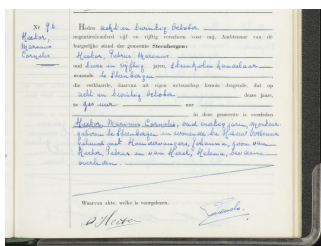 Nr 96.
Hector,
Marinus
Cornelis,
Heden acht en twintig October
negentienhonderd vijf en vijftig verscheen voor mij, Ambtenaar van de
burgerlijke stand der gemeente Steenbergen:
Hector, Petrus Marinus
oud twee en vijftig jaren, steenkolen handelaar
wonende te Steenbergen
die verklaarde, daarvan uit eigen wetenschap kennis dragende, dat op
acht en twintig October dezes jaars,
te zes uur
in deze gemeente is overleden
Hector Marinus Cornelis, oud jaren, monteur
geboren te Steenbergen en wonende te Nieuw Vossemeer
gehuwd met Johanna, zoon van
Hector, Petrus en van Helena, beiden
overleden.
Waarvan akte, welke is voorgelezen.
P. Hector